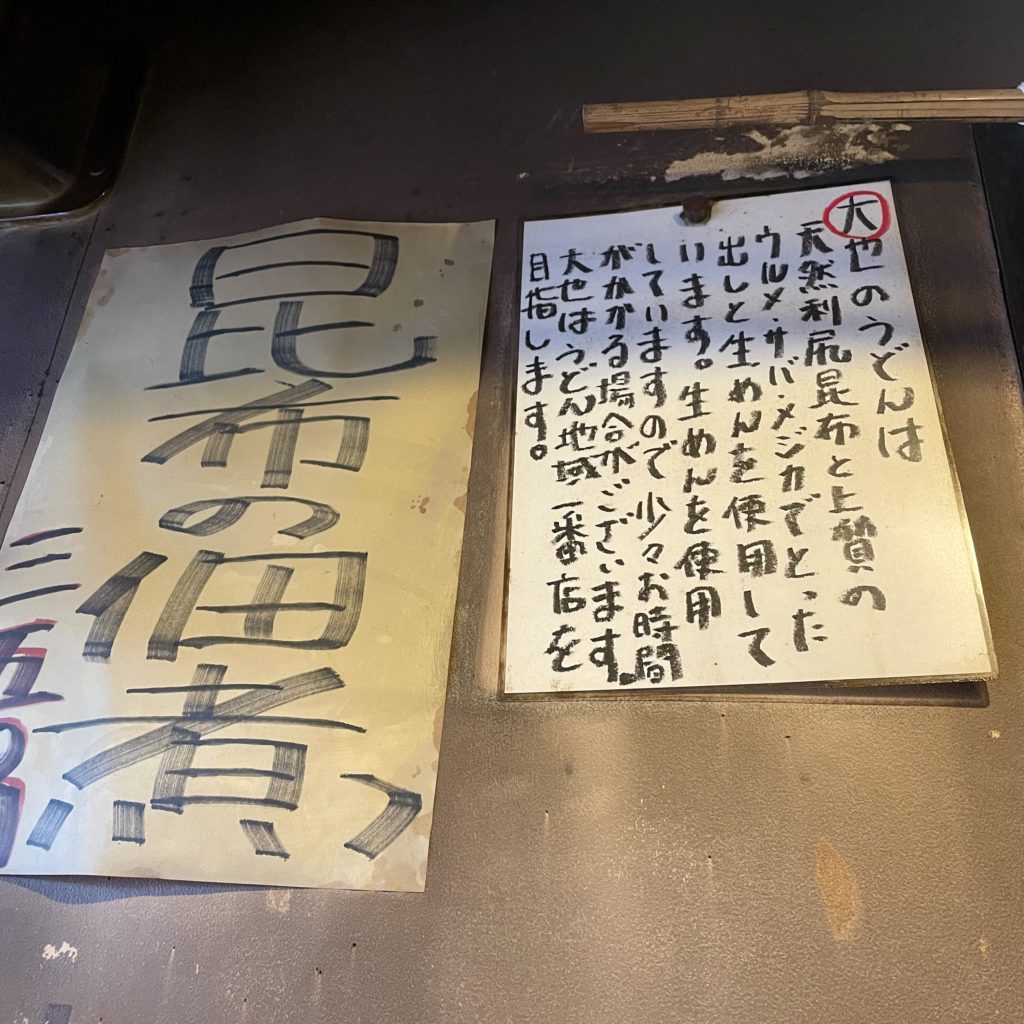 大也のうどんは
天然利尻昆布と上質の
ウルメ・サバ・メジカでとった
出しと生めんを使用して
います。生めんを使用
していますので少々お時間
がかかる場合がございます。
大也はうどん地域一番店を
目指します。
昆布の佃煮
三五〇